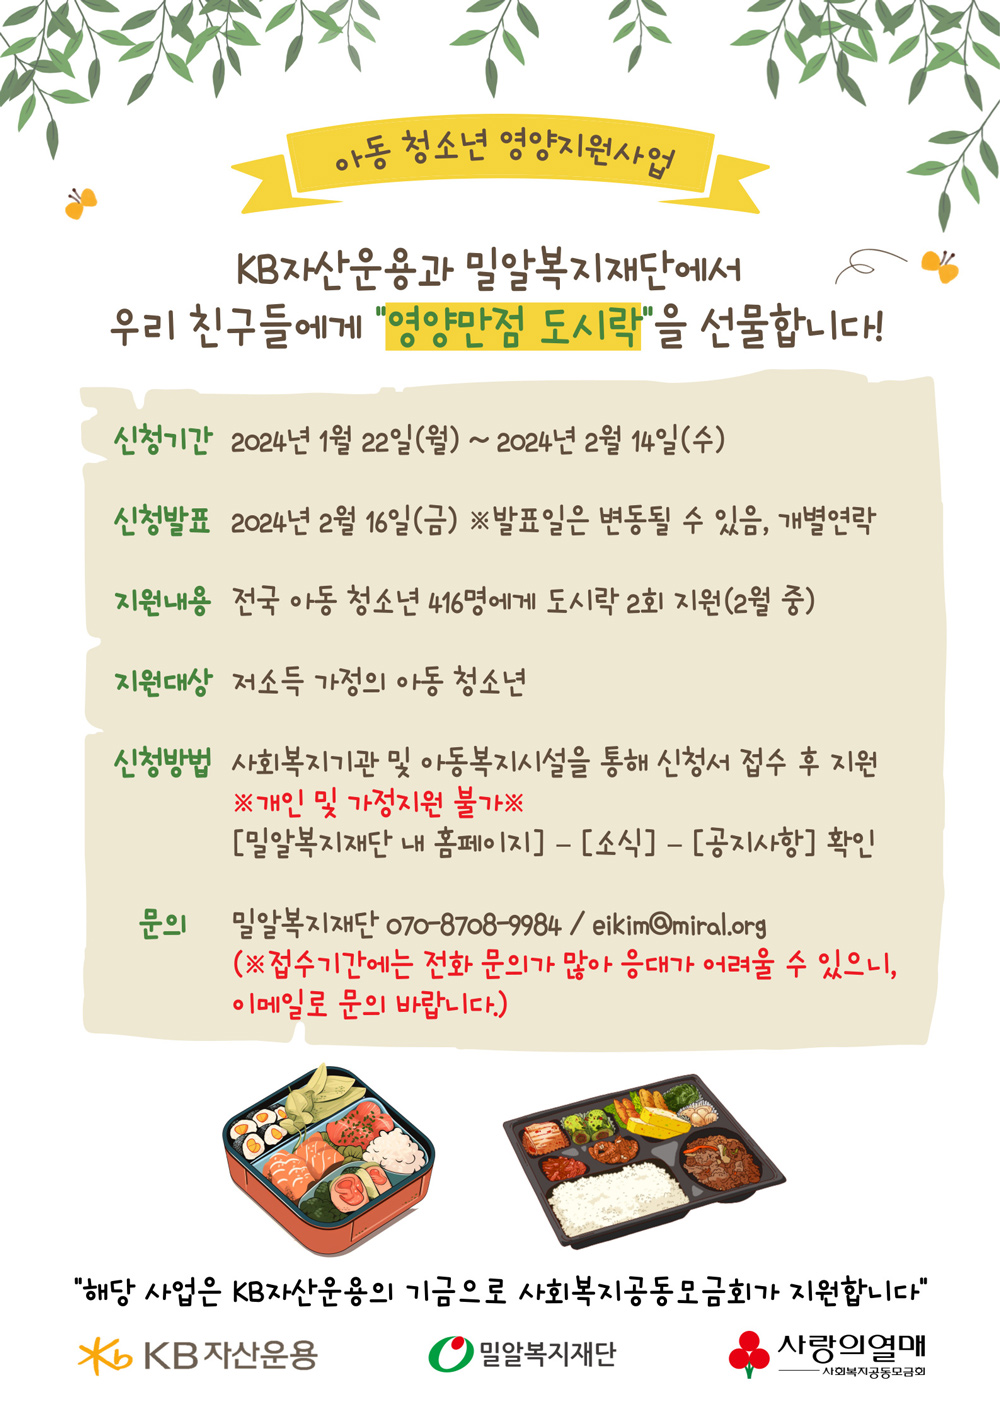 아동 청소년 영양지원사업
KB자산운용과 밀알복지재단에서
우리 친구들에게 "영양만점 도시락"을 선물합니다!
신청기간 2024년 1월 22일(월) ~ 2024년 2월 14일(수)
신청발표 2024년 2월 16일(금) ※발표일은 변동될 수 있음, 개별연락
지원내용 전국 아동 청소년 416명에게 도시락 2회 지원(2월 중)
지원대상 저소득 가정의 아동 청소년
신청방법 사회복지기관 및 아동복지시설을 통해 신청서 접수 후 지원
※개인 및 가정지원 불가※
[밀알복지재단 내 홈페이지] – [소식] – [공지사항] 확인
문의 밀알복지재단 070-8708-9984 / eikim@miral.org
(※접수기간에는 전화 문의가 많아 응대가 어려울 수 있으니,
이메일로 문의 바랍니다.)
"해당 사업은 KB자산운용의 기금으로 사회복지공동모금회가 지원합니다"
KB자산운용 밀알복지재단 사랑의열매
사회복지공동모금회